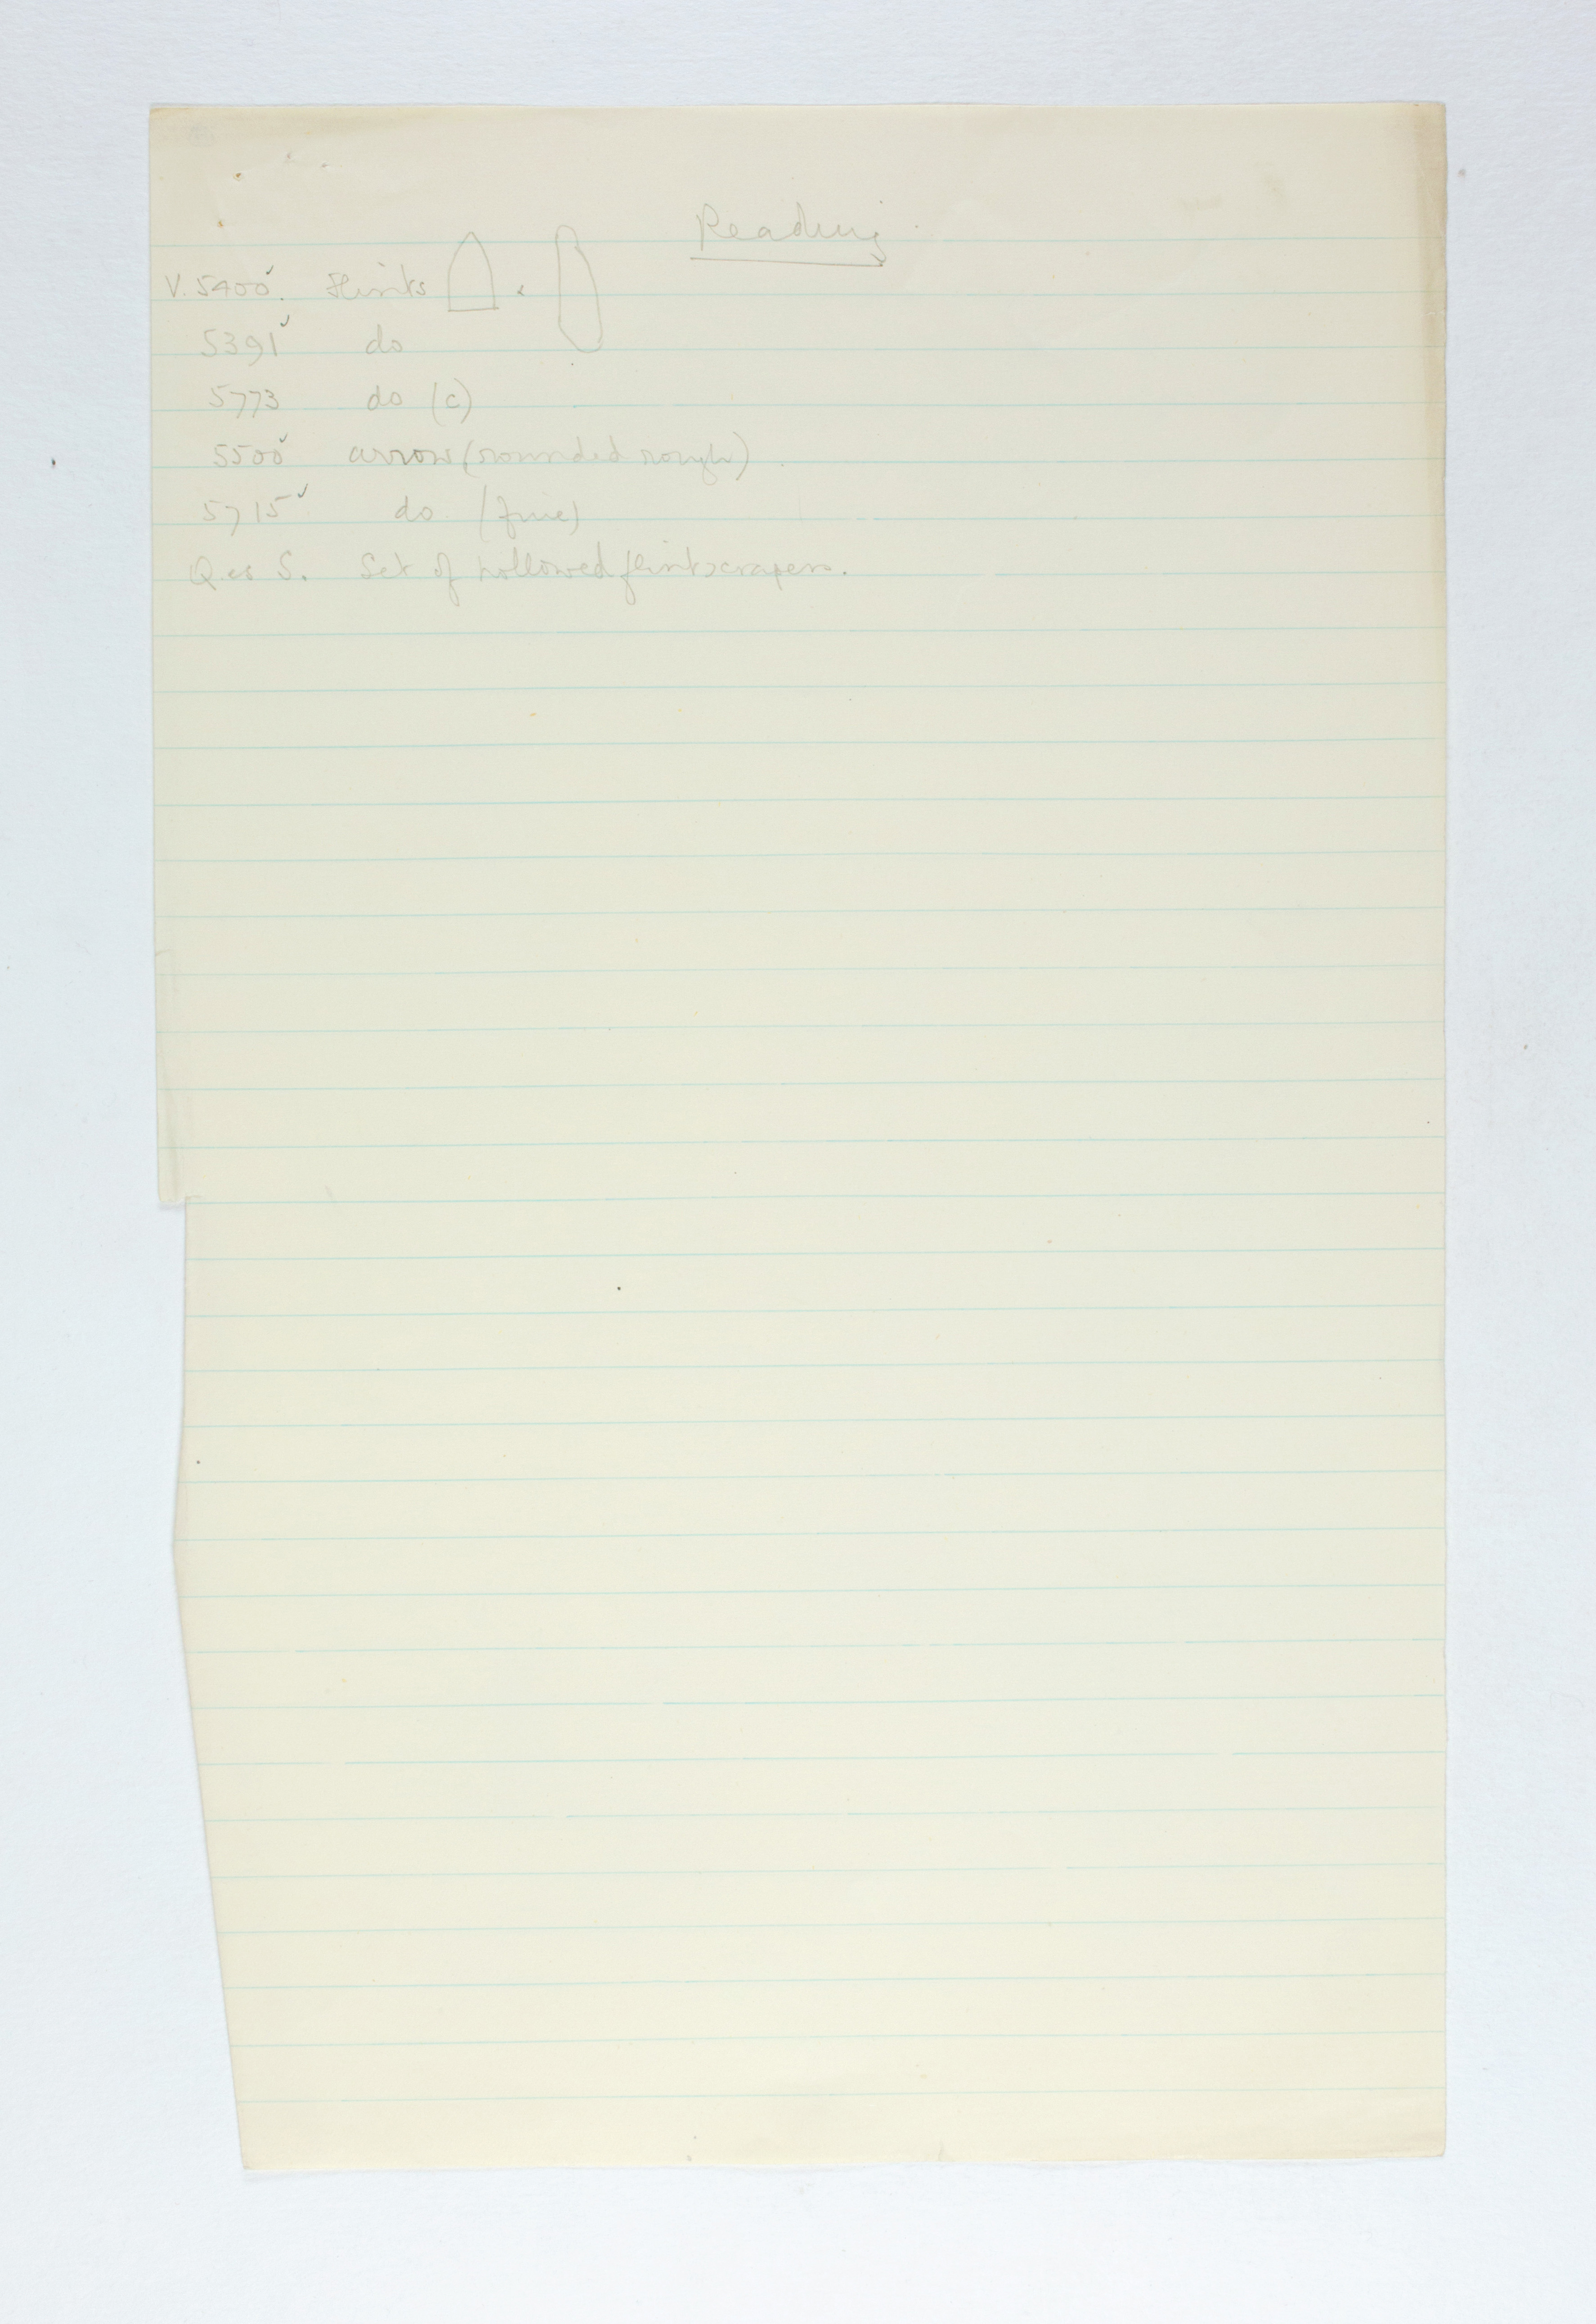 Reading
V. 5400. Flints
5391 do
5773 do (c)
5500 arrow (rounded rough)
5715 do (fine)
S. Set of hollowed flint scrapers.